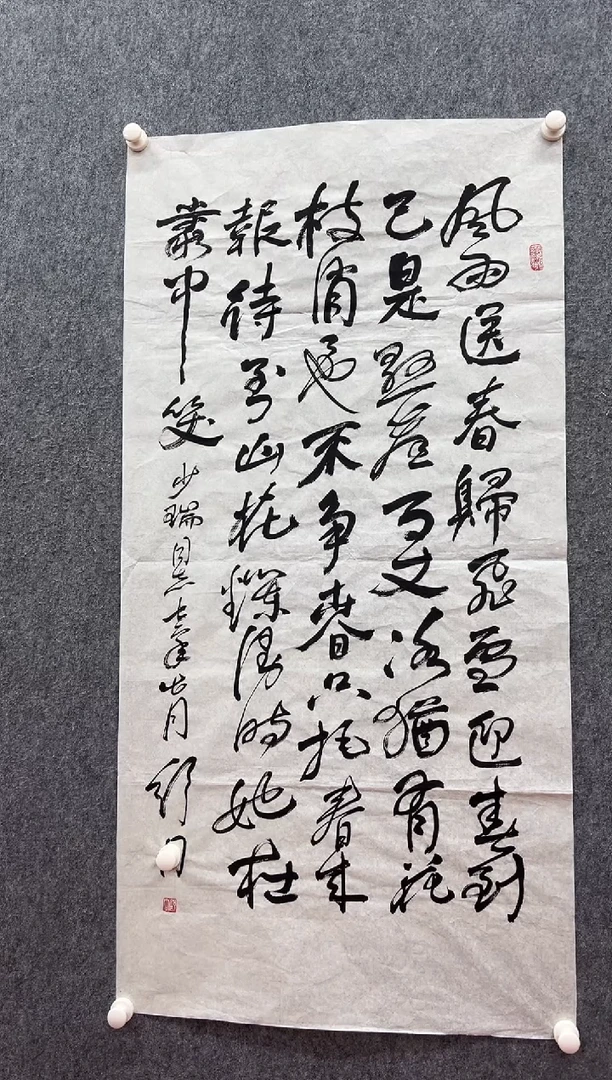 風雨送春歸飛雪迎春到
已是懸崖百丈冰猶有花
枝俏也不争春只把春来
報待到山花爛漫時她在
叢中笑 少瑞同志 年 月 舒同